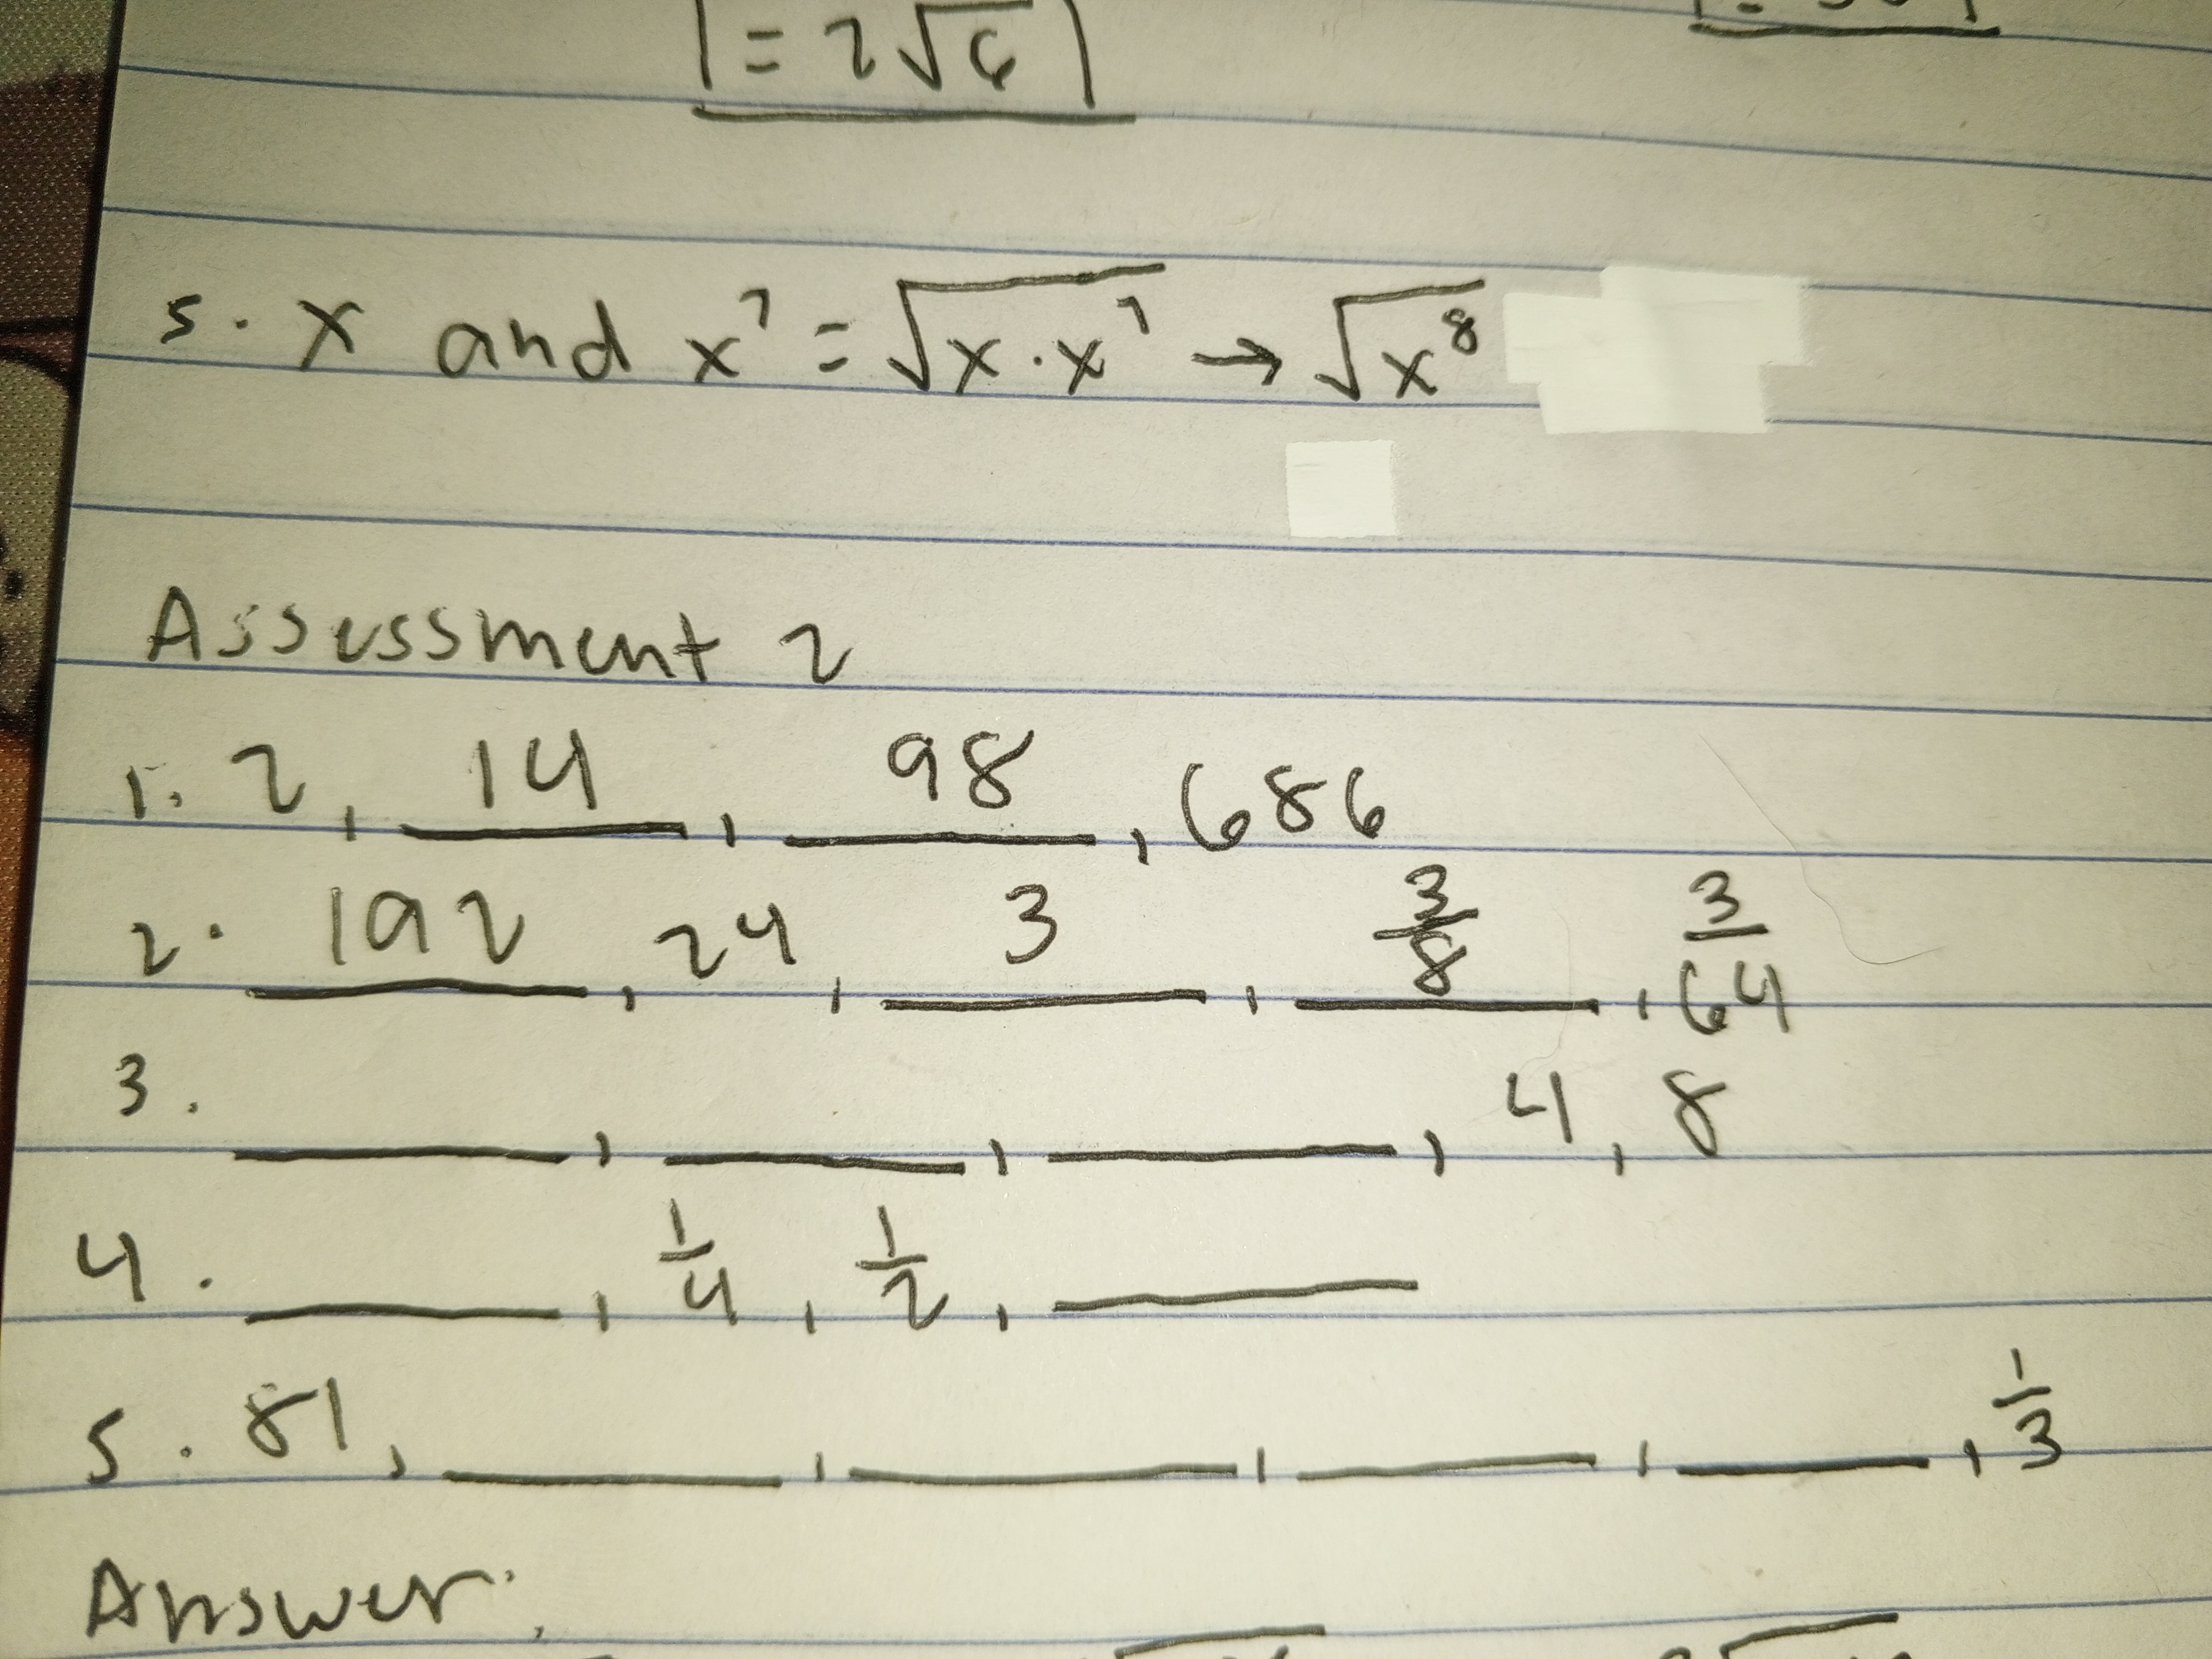 = 2√6
5. x and x⁷ = √x·x⁷ → √x⁸
Assessment 2
1. 2, 14, 98, 686
2. 192, 24, 3, 3/8, 3/64
3. ____, ____, ____, 4, 8
4. ____, 1/4, 1/2, ____
5. 81, ____, ____, ____, ____, 1/3
Answer: